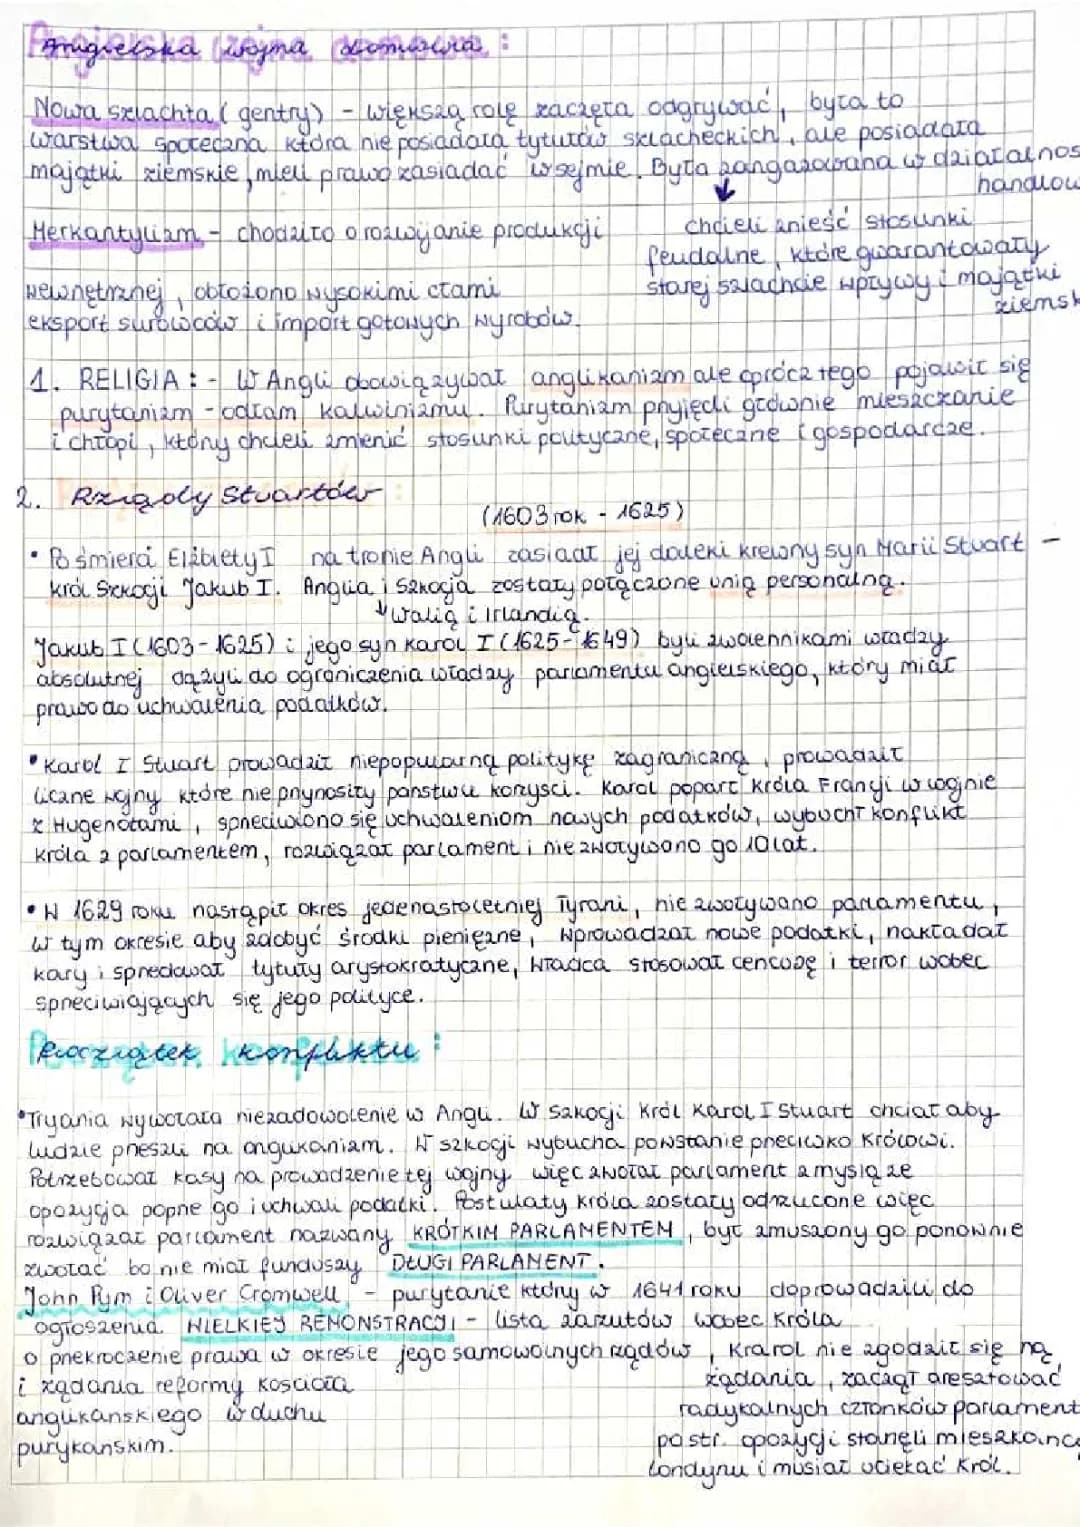 Angielska wojna domowa :
Nowa szlachta ( gentry) - większą rolę zaczęła odgrywać, była to
warstwa społeczna która nie posiadała tytułów szlacheckich, ale posiadała
majątki ziemskie, mieli prawo zasiadać w sejmie. Była zangażowana w działalnoś
handlow
↓
chcieli znieść stosunki
feudalne, które gwarantowały
starej szlachcie wpływy i majątki
ziemsk
Merkantylizm - chodziło o rozwijanie produkcji
wewnętrznej, obłożono wysokimi cłami
eksport surowców i import gotowych wyrobów.
1. RELIGIA : - W Angli obowiązywał anglikanizm ale oprócz tego pojawił się
purytanizm - odłam kalwinizmu. Purytanizm przyjęli głównie mieszczanie
i chłopi, którzy chcieli zmienić stosunki polityczne, społeczne i gospodarcze.
2. Rządy Stuartów :
(1603 rok - 1625)
• Po śmierci Elżbiety I na tronie Angli zasiadł jej daleki krewny syn Marii Stuart -
król Szkocji Jakub I. Anglia i Szkocja zostały połączone unią personalną.
↓ Walią i Irlandią.
Jakub I (1603 - 1625) i jego syn Karol I (1625 - 1649) byli zwolennikami władzy
absolutnej dążyli do ograniczenia władzy parlamentu angielskiego, który miał
prawo do uchwalenia podatków.
• Karol I Stuart prowadził niepopularną politykę zagraniczną, prowadził
liczne wojny które nie przynosiły państwu korzyści. Karol poparł króla Francji w wojnie
z Hugenotami, sprzeciwiono się uchwaleniom nowych podatków, wybuchł konflikt
króla z parlamentem, rozwiązał parlament i nie zwoływano go 10 lat.
• W 1629 roku nastąpił okres jedenastoletniej Tyrani, nie zwoływano parlamentu,
w tym okresie aby zdobyć środki pieniężne, wprowadzał nowe podatki, nakładał
kary i sprzedawał tytuły arystokratyczne, władca stosował cenzurę i terror wobec
sprzeciwiających się jego polityce.
Początek konfliktu :
• Tryania wywołała niezadowolenie w Angli. W Szkocji Król Karol I Stuart chciał aby
ludzie przeszli na anglikanizm. W szkocji wybucha powstanie przeciwko królowi.
Potrzebował kasy na prowadzenie tej wojny więc zwołał parlament z myślą że
opozycja poprze go i uchwali podatki. Postulaty króla zostały odrzucone więc
rozwiązał parlament nazwany KRÓTKIM PARLAMENTEM, był zmuszony go ponownie
zwołać bo nie miał funduszy DŁUGI PARLAMENT.
John Pym i Oliver Cromwell - purytanie którzy w 1641 roku doprowadzili do
ogłoszenia WIELKIEJ REMONSTRACJI - lista zarzutów wobec króla
o przekroczenie prawa w okresie jego samowolnych rządów, Krarol nie zgodził się na
i żądania reformy kościoła
anglikańskiego w duchu
purykańskim.
żądania, zaczął aresztować
radykalnych członków parlament
po str. opozycji stanęli mieszkańc
Londynu i musiał uciekać król.